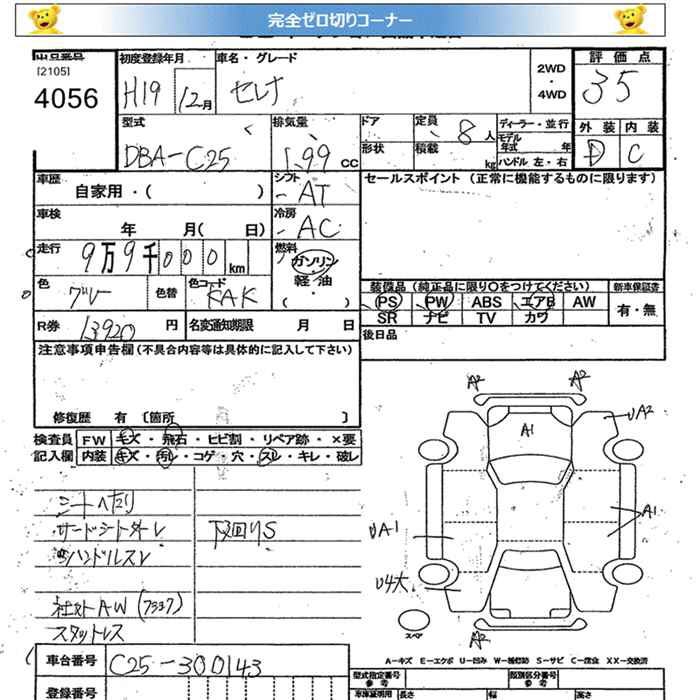 完全ゼロ切りコーナー
出品番号 [2105] 4056
初度登録年月 H19 12月
車名・グレード セレナ
2WD ・ 4WD
評価点 3.5
外装 D 内装 C
型式 DBA-C25
排気量 1.99 cc
ドア 形状
定員 8人 積載 kg
ディーラー・並行
モデル年式 年
ハンドル 左・右
車歴 自家用・( )
シフト AT
セールスポイント (正常に機能するものに限ります)
車検 年 月( 日)
冷房 AC
走行 9万9千000km
燃料 ガソリン・軽油・( )
色 グレー 色替 色コード KAK
装備品(純正品に限り○をつけてください) 新車保証書
PS PW ABS エアB AW 有・無
SR ナビ TV カワ
R券 13920円 名変通知期限 月 日
後日品
注意事項申告欄(不具合内容等は具体的に記入して下さい)
修復歴 有 〔箇所 〕
検査員 FW キズ・飛石・ヒビ割・リペア跡・×要
記入欄 内装 キズ・汚れ・コゲ・穴・スレ・キレ・破レ
シートヘタリ
ハンドルスレ
下回りS
社外AW
スタットレス
A2 A2
UA2
A1
A1
UA1
U4大
スペア
A2
A-キズ E-エクボ U-凹み W-補修跡 S-サビ C-腐食 XX-交換済
車台番号 C25-300143
型式指定番号 参考 類別区分番号 参考
登録番号 車庫証明用 長さ 幅 高さ